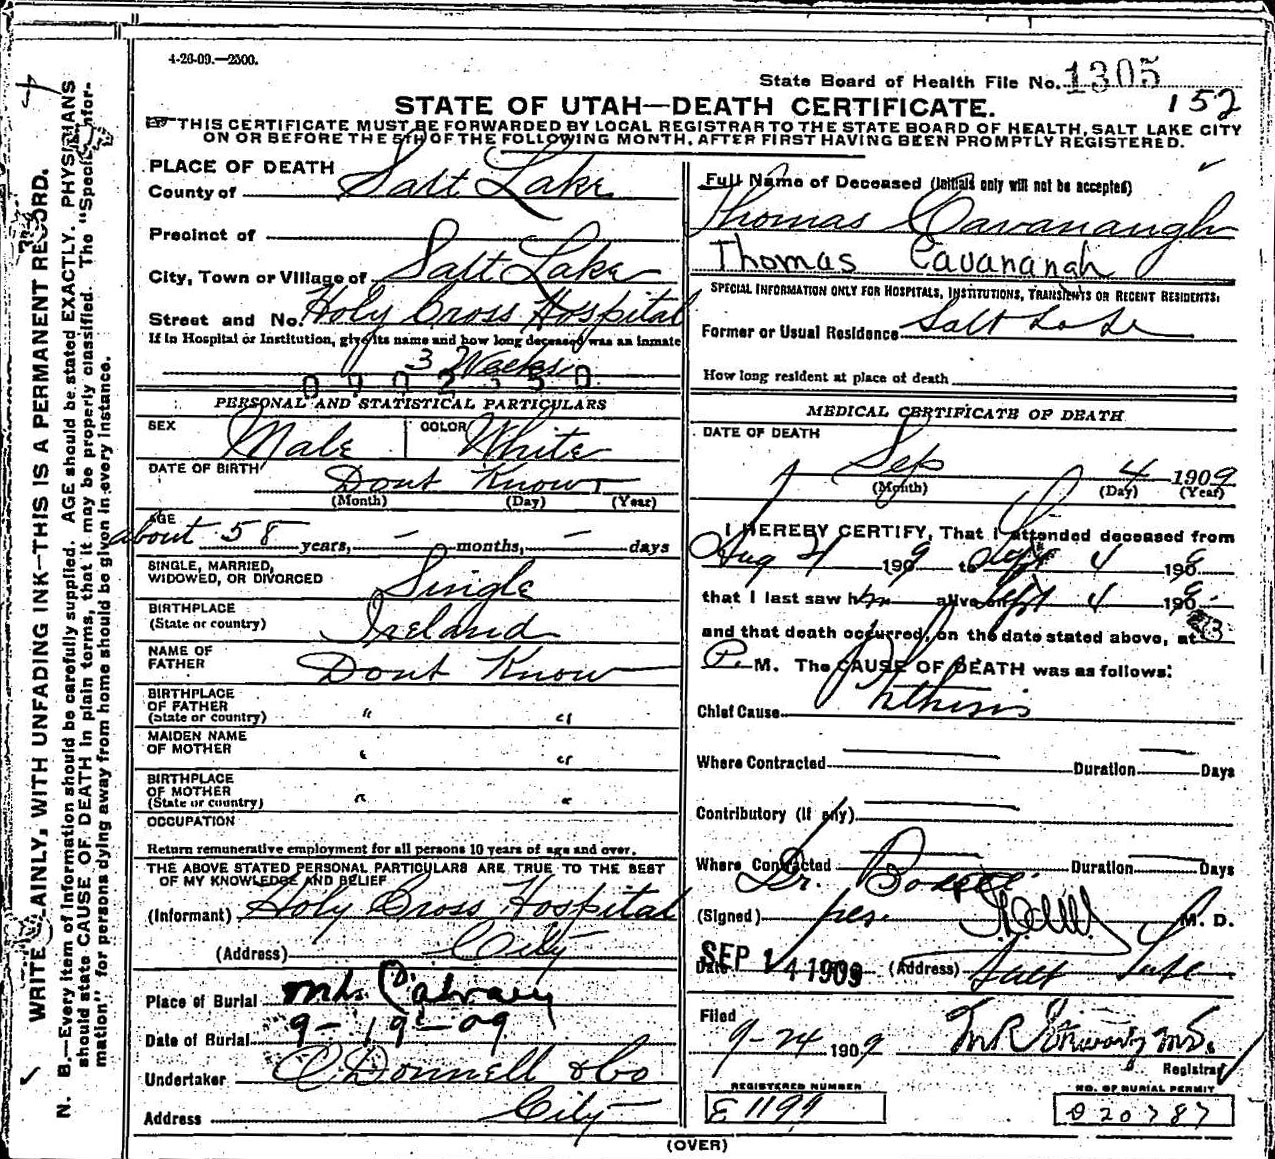 4-26-09.—2500.
State Board of Health File No. 1305
152
STATE OF UTAH—DEATH CERTIFICATE.
THIS CERTIFICATE MUST BE FORWARDED BY LOCAL REGISTRAR TO THE STATE BOARD OF HEALTH, SALT LAKE CITY
ON OR BEFORE THE 5TH OF THE FOLLOWING MONTH, AFTER FIRST HAVING BEEN PROMPTLY REGISTERED.
PLACE OF DEATH
County of Salt Lake
Precinct of
City, Town or Village of Salt Lake
Street and No. Holy Cross Hospital
If in Hospital or Institution, give its name and how long deceased was an inmate
3 Weeks
PERSONAL AND STATISTICAL PARTICULARS
SEX Male COLOR White
DATE OF BIRTH Dont Know
(Month) (Day) (Year)
AGE
about 58 years, — months, — days
SINGLE, MARRIED,
WIDOWED, OR DIVORCED Single
BIRTHPLACE
(State or country) Ireland
NAME OF
FATHER Dont Know
BIRTHPLACE
OF FATHER
(State or country) " "
MAIDEN NAME
OF MOTHER " "
BIRTHPLACE
OF MOTHER
(State or country) " "
OCCUPATION
Return remunerative employment for all persons 10 years of age and over.
THE ABOVE STATED PERSONAL PARTICULARS ARE TRUE TO THE BEST
OF MY KNOWLEDGE AND BELIEF
(Informant) Holy Cross Hospital
(Address) City
Place of Burial Mt. Calvary
Date of Burial 9-19-09
Undertaker O'Donnell & Co
Address City
Full Name of Deceased (Initials only will not be accepted)
Thomas Cavanaugh
Thomas Cavanangh
SPECIAL INFORMATION ONLY FOR HOSPITALS, INSTITUTIONS, TRANSIENTS OR RECENT RESIDENTS:
Former or Usual Residence Salt Lake
How long resident at place of death
MEDICAL CERTIFICATE OF DEATH
DATE OF DEATH
Sep 4 1909
(Month) (Day) (Year)
I HEREBY CERTIFY, That I attended deceased from
Aug 4 1909 to Sept 4 190
that I last saw him alive on Sept 4 190
and that death occurred, on the date stated above, at
P. M. The CAUSE OF DEATH was as follows:
Chief Cause Phthisis
Where Contracted Duration Days
Contributory (If any)
Where Contracted Duration Days
Dr.
(Signed) per. M. D.
Date SEP 14 1909 (Address) Salt Lake
Filed
9-24 1909
Registrar
REGISTERED NUMBER
E 1199
NO. OF BURIAL PERMIT
020787
(OVER)
WRITE PLAINLY, WITH UNFADING INK—THIS IS A PERMANENT RECORD.
N. B.—Every item of information should be carefully supplied. AGE should be stated EXACTLY. PHYSICIANS
should state CAUSE OF DEATH in plain terms, that it may be properly classified. The "Special Infor-
mation" for persons dying away from home should be given in every instance.